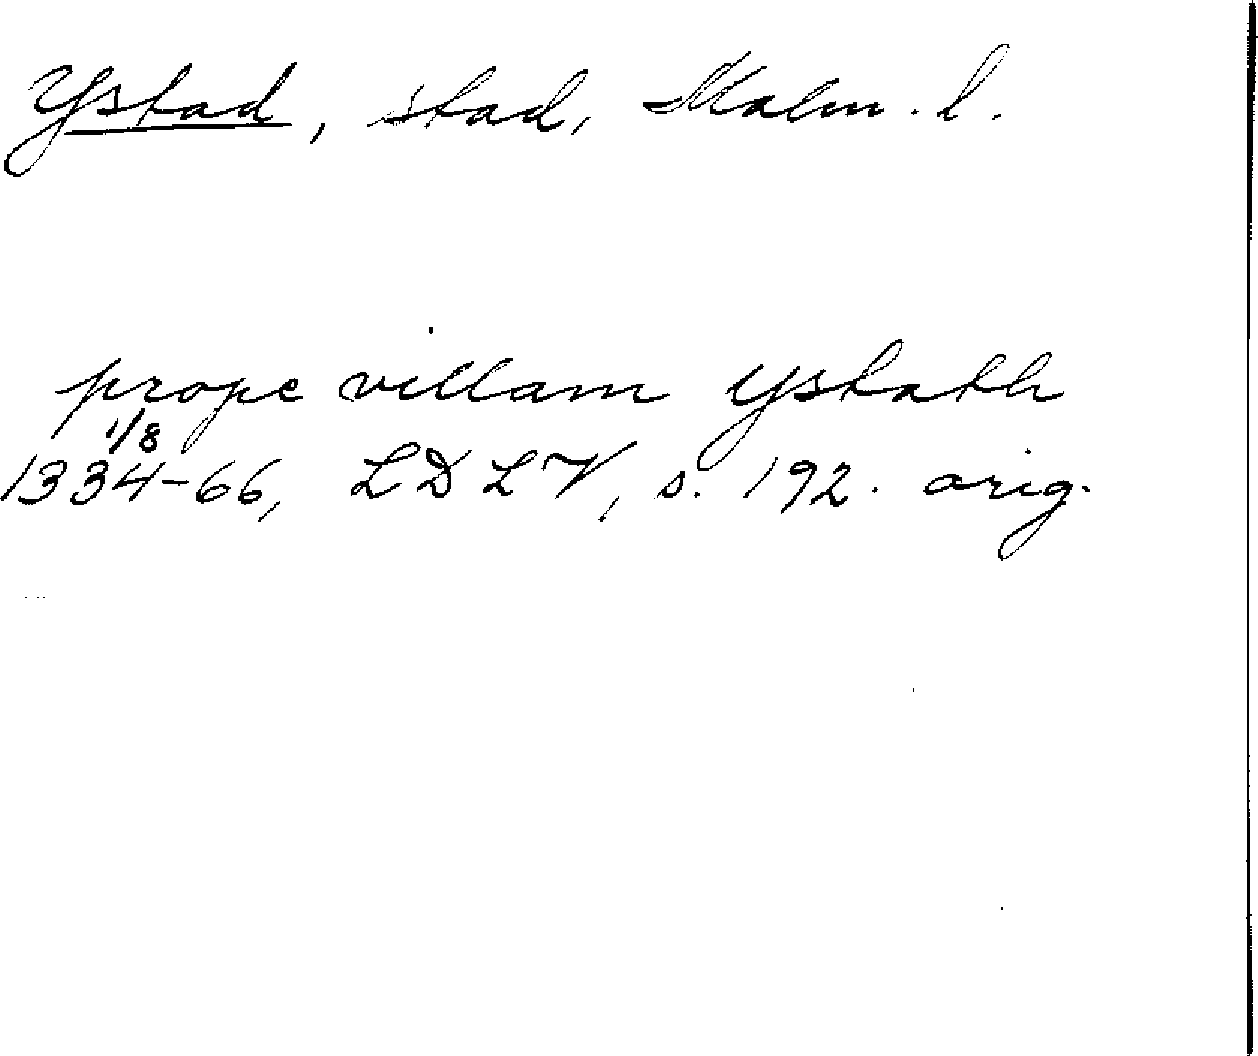 Ystad, stad, Malm. l.
prope villam Ystath
1/8
1334-66, LDLV, s. 192. orig.